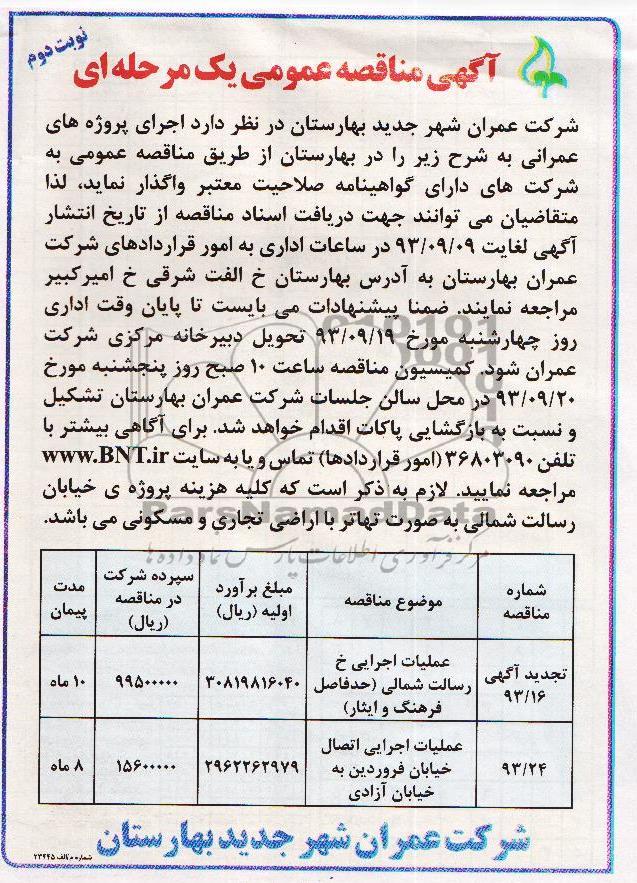 نوبت دوم
آگهی مناقصه عمومی یک مرحله ای
شرکت عمران شهر جدید بهارستان در نظر دارد اجرای پروژه های
عمرانی به شرح زیر را در بهارستان از طریق مناقصه عمومی به
شرکت های دارای گواهینامه صلاحیت معتبر واگذار نماید، لذا
متقاضیان می توانند جهت دریافت اسناد مناقصه از تاریخ انتشار
آگهی لغایت ۹۳/۰۹/۰۹ در ساعات اداری به امور قراردادهای شرکت
عمران بهارستان به آدرس بهارستان خ الفت شرقی خ امیرکبیر
مراجعه نمایند. ضمنا پیشنهادات می بایست تا پایان وقت اداری
روز چهارشنبه مورخ ۹۳/۰۹/۱۹ تحویل دبیرخانه مرکزی شرکت
عمران شود. کمیسیون مناقصه ساعت ۱۰ صبح روز پنجشنبه مورخ
۹۳/۰۹/۲۰ در محل سالن جلسات شرکت عمران بهارستان تشکیل
و نسبت به بازگشایی پاکات اقدام خواهد شد. برای آگاهی بیشتر با
تلفن ۳۶۸۰۳۰۹۰ (امور قراردادها) تماس و یا به سایت www.BNT.ir
مراجعه نمایید. لازم به ذکر است که کلیه هزینه پروژه ی خیابان
رسالت شمالی به صورت تهاتر با اراضی تجاری و مسکونی می باشد.
ParsNamadData
مرکز فرآوری اطلاعات پارس نماد داده ها
شماره مناقصه موضوع مناقصه مبلغ برآورد اولیه (ریال) سپرده شرکت در مناقصه (ریال) مدت پیمان
تجدید آگهی ۹۳/۱۶ عملیات اجرایی خ رسالت شمالی (حدفاصل فرهنگ و ایثار) ۳۰۸۱۹۸۱۶۰۴۰ ۹۹۵۰۰۰۰۰ ۱۰ ماه
۹۳/۲۴ عملیات اجرایی اتصال خیابان فروردین به خیابان آزادی ۲۹۶۲۲۶۲۹۷۹ ۱۵۶۰۰۰۰۰ ۸ ماه
شرکت عمران شهر جدید بهارستان
شماره م الف ۲۳۴۴۵